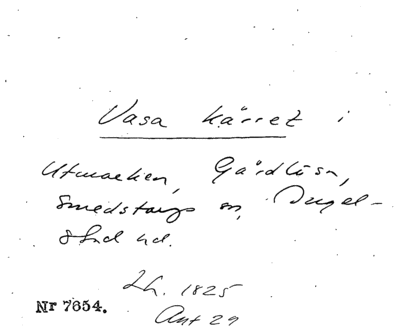 Vasa kärret i
Utmarken, Gärdlösa,
Smedstorps sn, Ingel-
stad hd.
Lh. 1825
Ant 29
Nr 7654.